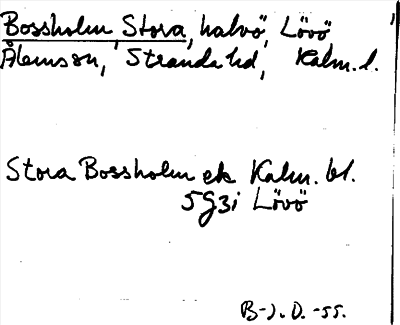 Bossholm, Stora, halvö, Lövö
Ålems sn, Stranda hd, Kalm. l.
Stora Bossholm ek Kalm. bl.
5G3i Lövö
B-J. D. -55.